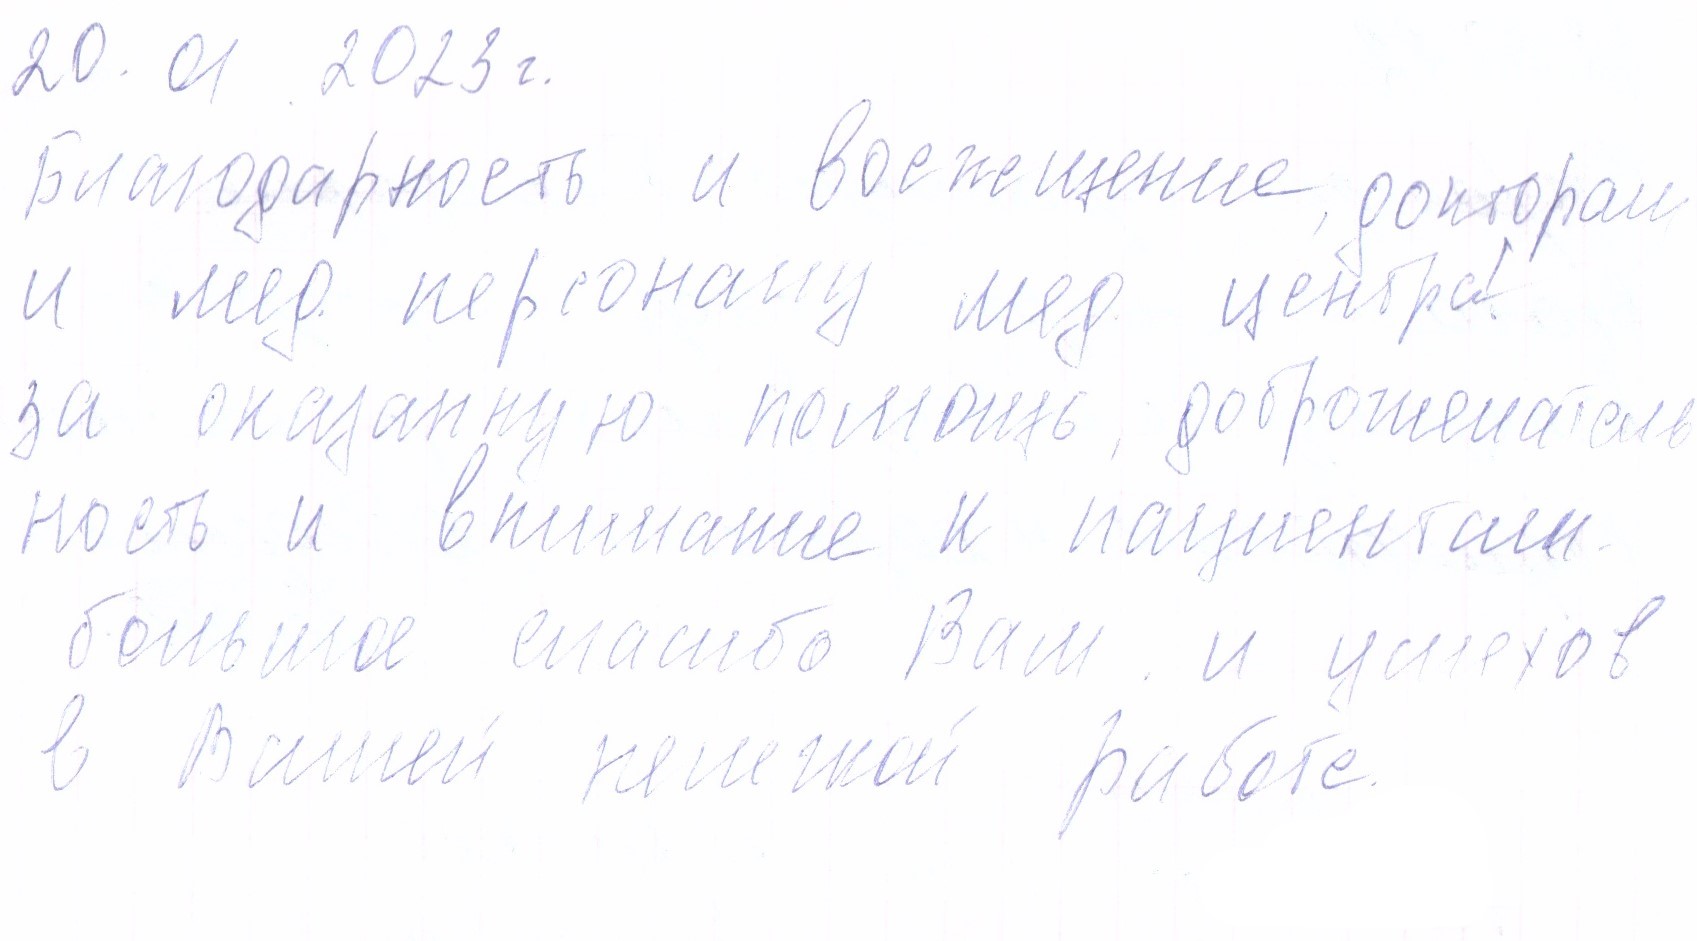 20. 01 2023 г.
Благодарность и восхещение, докторам
и мед. персоналу мед. центра!
за оказанную помощь, доброжелатель
ность и внимание к пациентам.
большое спасибо Вам. и успехов
в Вашей нелегкой работе.